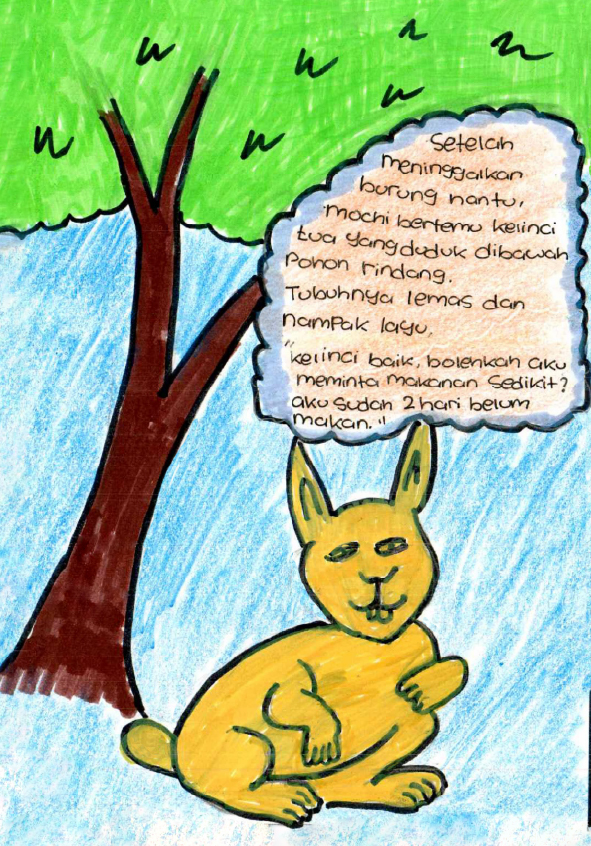 Setelah
meninggalkan
burung hantu,
mochi bertemu kelinci
tua yang duduk dibawah
Pohon rindang.
Tubuhnya lemas dan
nampak layu.
"kelinci baik, bolehkah aku
meminta makanan sedikit?
aku sudah 2 hari belum
makan."